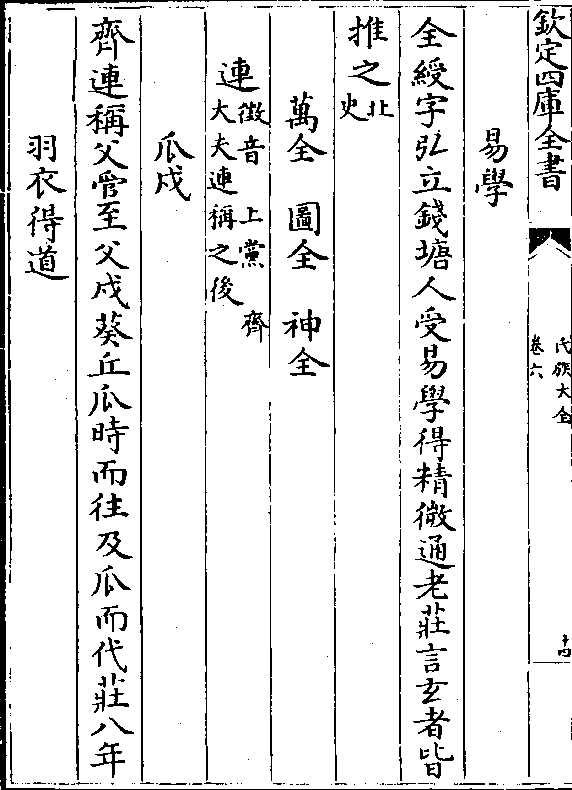 欽定四庫全書
氏族大全
卷六
十四
易學
全緩字弘立錢塘人受易學得精微通老莊言玄者皆
推之北史
萬全 圖全 神全
連徵音 上黨 齊大夫連稱之後
瓜戍
齊連稱父管至父戍葵丘瓜時而往及瓜而代莊八年
羽衣得道